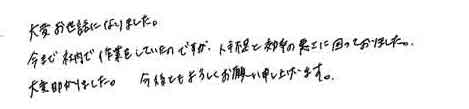 大変お世話になりました。
今まで社内で作業をしていたのですが、人手不足と効率の悪さに困っておりました。
大変助かりました。 今後ともよろしくお願い申し上げます。